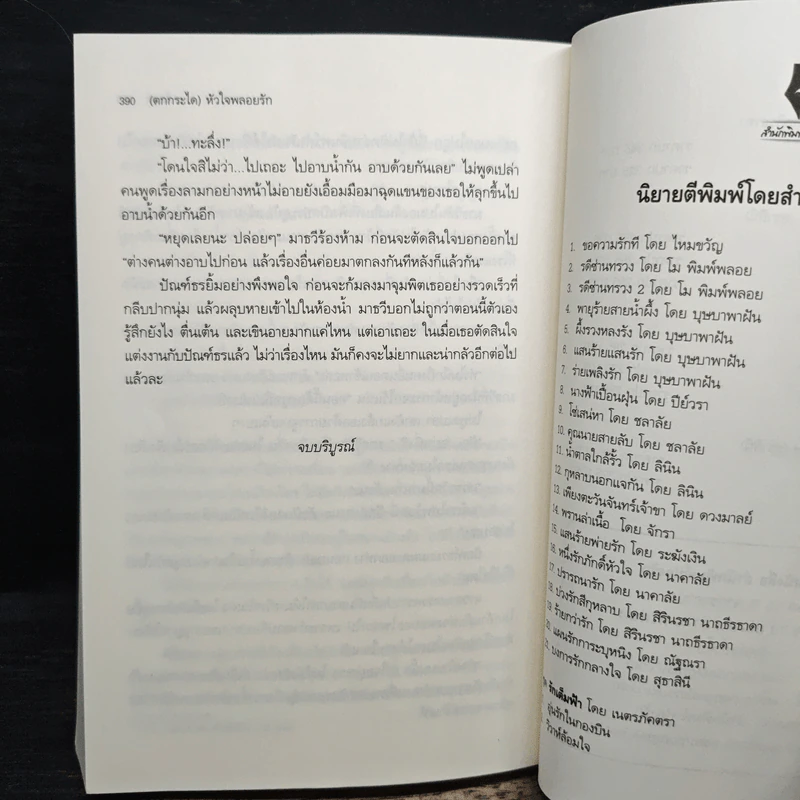 390 (ตกกระได) หัวใจพลอยรัก
“บ้า!...ทะลึ่ง!”
“โดนใจสิไม่ว่า...ไปเถอะ ไปอาบน้ำกัน อาบด้วยกันเลย” ไม่พูดเปล่า
คนพูดเรื่องลามกอย่างหน้าไม่อายยังเอื้อมมือมาฉุดแขนของเธอให้ลุกขึ้นไป
อาบน้ำด้วยกันอีก
“หยุดเลยนะ ปล่อยๆ” มาธวีร้องห้าม ก่อนจะตัดสินใจบอกออกไป
“ต่างคนต่างอาบไปก่อน แล้วเรื่องอื่นค่อยมาตกลงกันทีหลังก็แล้วกัน”
ปัณฑ์ธรยิ้มอย่างพึงพอใจ ก่อนจะก้มลงมาจุมพิตเธออย่างรวดเร็วที่
กลีบปากนุ่ม แล้วผลุบหายเข้าไปในห้องน้ำ มาธวีบอกไม่ถูกว่าตอนนี้ตัวเอง
รู้สึกยังไง ตื่นเต้น และเขินอายมากแค่ไหน แต่เอาเถอะ ในเมื่อเธอตัดสินใจ
แต่งงานกับปัณฑ์ธรแล้ว ไม่ว่าเรื่องไหน มันก็คงจะไม่ยากและน่ากลัวอีกต่อไป
แล้วละ
จบบริบูรณ์
สำนักพิมพ์
นิยายตีพิมพ์โดยสำ
1. ขอความรักที โดย ไหมขวัญ
2. รดีซ่านทรวง โดย โม พิมพ์พลอย
3. รดีซ่านทรวง 2 โดย โม พิมพ์พลอย
4. พายุร้ายสายน้ำผึ้ง โดย บุษบาพาฝัน
5. ผึ้งรวงหลงรัง โดย บุษบาพาฝัน
6. แสนร้ายแสนรัก โดย บุษบาพาฝัน
7. ร่ายเพลิงรัก โดย บุษบาพาฝัน
8. นางฟ้าเปื้อนฝุ่น โดย ปีย์วรา
9. โซ่เสน่หา โดย ชลาลัย
10. คุณนายสายลับ โดย ชลาลัย
11. น้ำตาลใกล้รั้ว โดย ลินิน
12. กุหลาบนอกแจกัน โดย ลินิน
13. เพียงตะวันจันทร์เจ้าขา โดย ดวงมาลย์
14. พรานล่าเนื้อ โดย จักรา
15. แสนร้ายพ่ายรัก โดย ระฆังเงิน
16. หนึ่งรักภักดิ์หัวใจ โดย นาคาลัย
17. ปรารถนารัก โดย นาคาลัย
18. บ่วงรักสีกุหลาบ โดย สิรินรชา นาถธีรธาดา
19. ร้ายกว่ารัก โดย สิรินรชา นาถธีรธาดา
20. แผนรักการะบุหนิง โดย ณัฐณรา
บงการรักกลางใจ โดย สุธาสินี
รักเต็มฟ้า โดย เนตรภัคตรา
อุ่นรักในกองบิน
วิวาห์ล้อมใจ